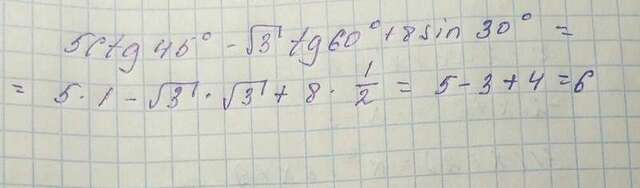 5ctg 45° - √3 tg 60° + 8 sin 30° =
= 5 · 1 - √3 · √3 + 8 · 1/2 = 5 - 3 + 4 = 6